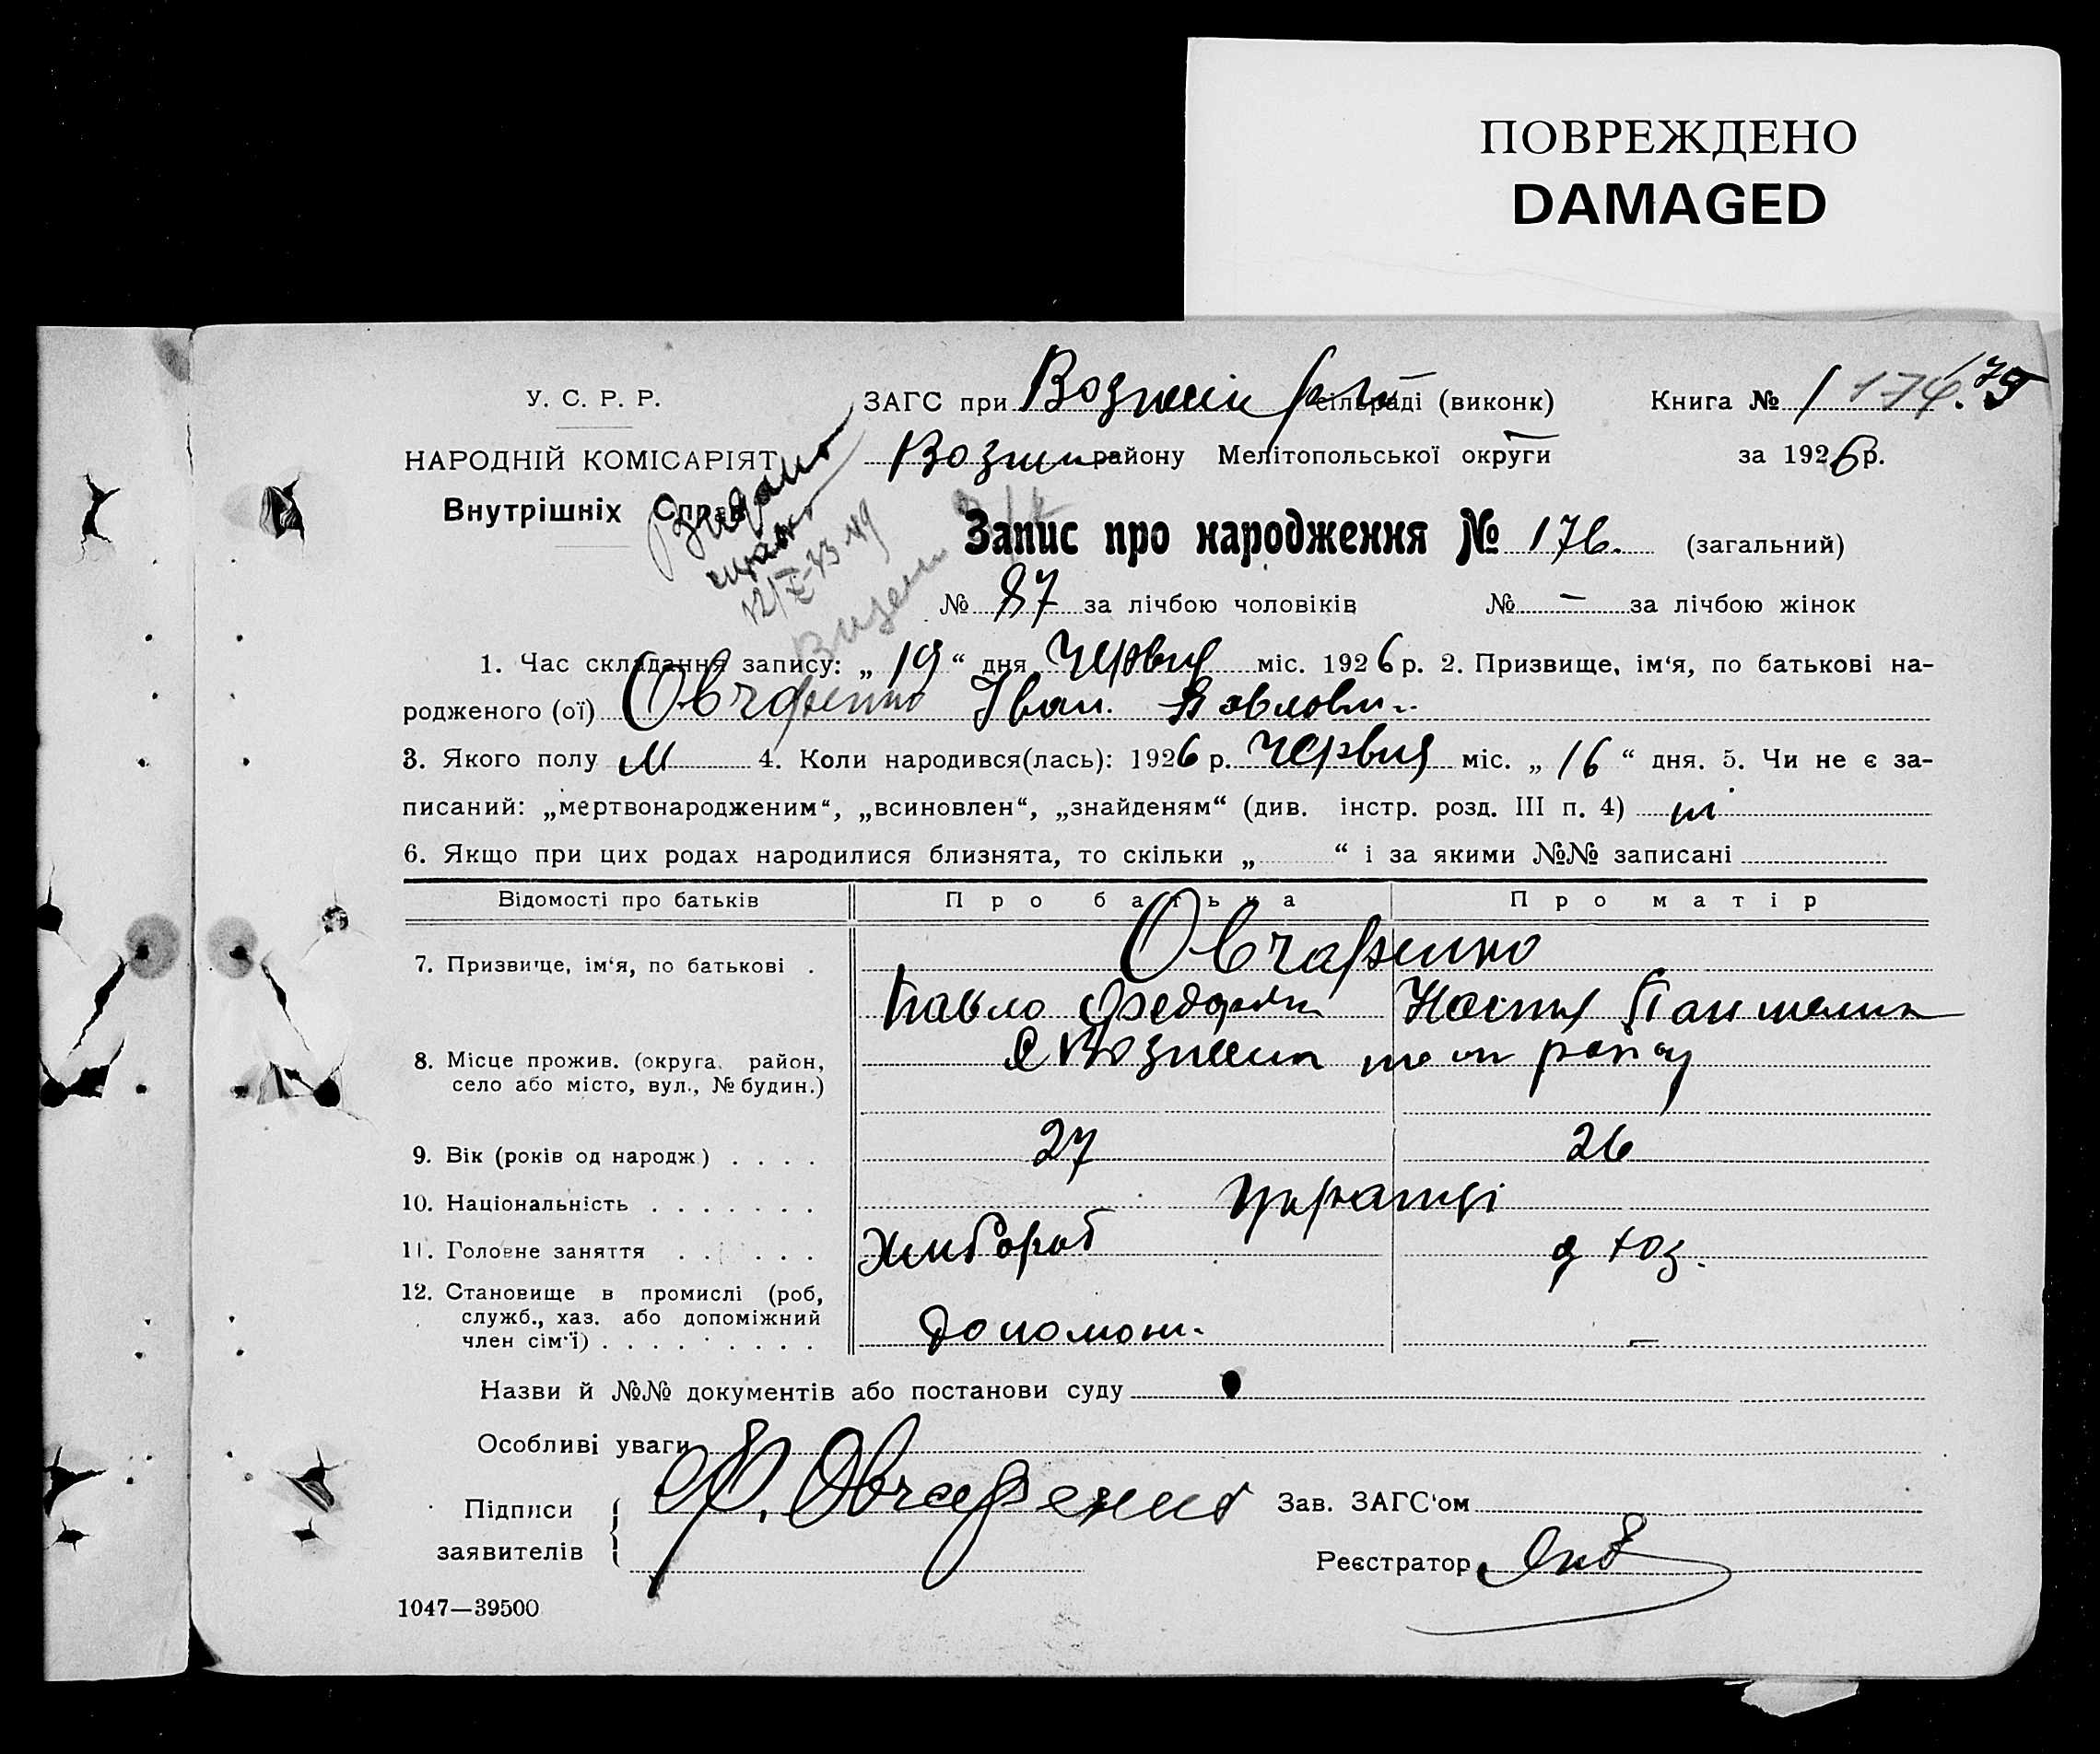 ПОВРЕЖДЕНО
DAMAGED
У. С. Р. Р.
ЗАГС при сільраді (виконк)
Книга № 1
НАРОДНІЙ КОМІСАРІЯТ
району Мелітопольської округи
за 1926 р.
Внутрішніх Справ
Видано
Запис про народження № 176. (загальний)
№ 87 за лічбою чоловіків № — за лічбою жінок
1. Час складання запису: „ 19 “ дня червня міс. 1926 р. 2. Призвище, ім‘я, по батькові на-
родженого (ої) Овчаренко Іван Павлович
3. Якого полу м 4. Коли народився(лась): 1926 р. червня міс. „ 16 “ дня. 5. Чи не є за-
писаний: „мертвонародженим“, „всиновлен“, „знайденям“ (див. інстр. розд. III п. 4) ні
6. Якщо при цих родах народилися близнята, то скільки „ “ і за якими №№ записані
Відомості про батьків Про батька Про матір
Овчаренко
7. Призвище, ім‘я, по батькові .
Павло Федоров Настя
8. Місце прожив. (округа, район,
село або місто, вул., № будин.)
9. Вік (років од народж) . . . . 27 26
10. Національність . . . . . . . Українці
11. Головне заняття . . . . . . Хлібороб д хоз.
12. Становище в промислі (роб,
служб., хаз. або допоміжний
член сім‘ї) . . . . . . . . . Допомож. —
Назви й №№ документів або постанови суду
Особливі уваги
Підписи
заявителів
Ф. Овчаренко
Зав. ЗАГС‘ом
Реєстратор
1047—39500